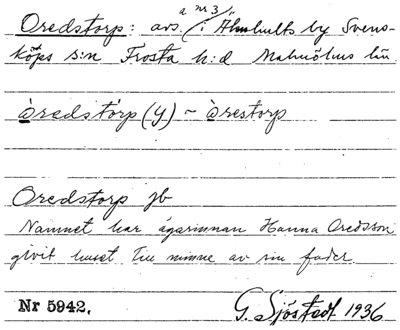 a nr 3
Oredstorp: avs. / i Ahultults by Svens-
köps s:n Frosta h:d Malmöhus län.
òredstórp (y) ~ òrestorp
Oredstorp jb
Namnet har ägarinnan Hanna Oredsson
givit huset till minne av sin fader.
Nr 5942. G. Sjöstedt 1936